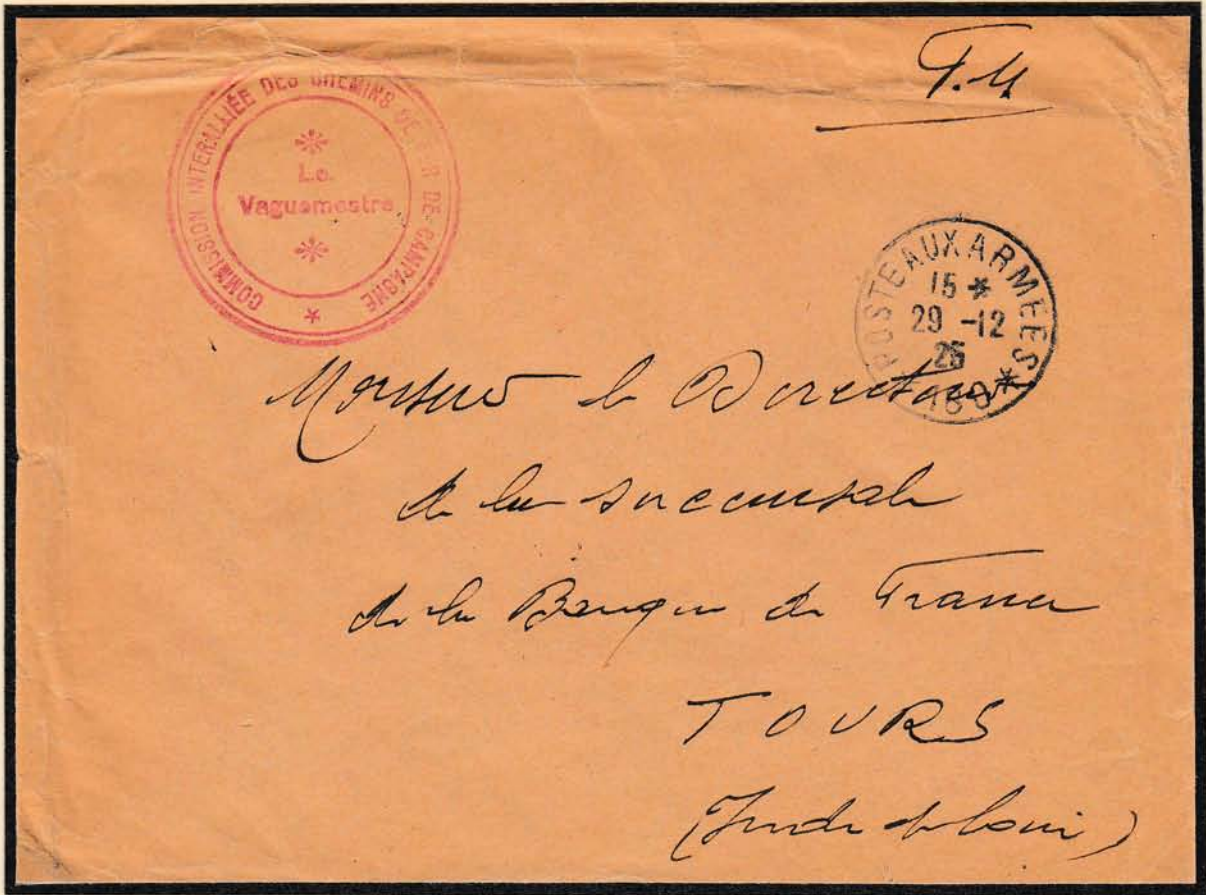 F.M
COMMISSION INTERALLIÉE DES CHEMINS DE FER DE CAMPAGNE
Le
Vaguemestre
POSTE AUX ARMEES
15 *
29 -12
25
* 180 *
Monsieur le Directeur
de la succursale
de la Banque de France
TOURS
(Indre et Loire)